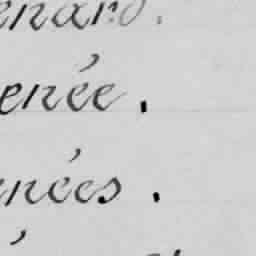 enard.
enée.
enées.